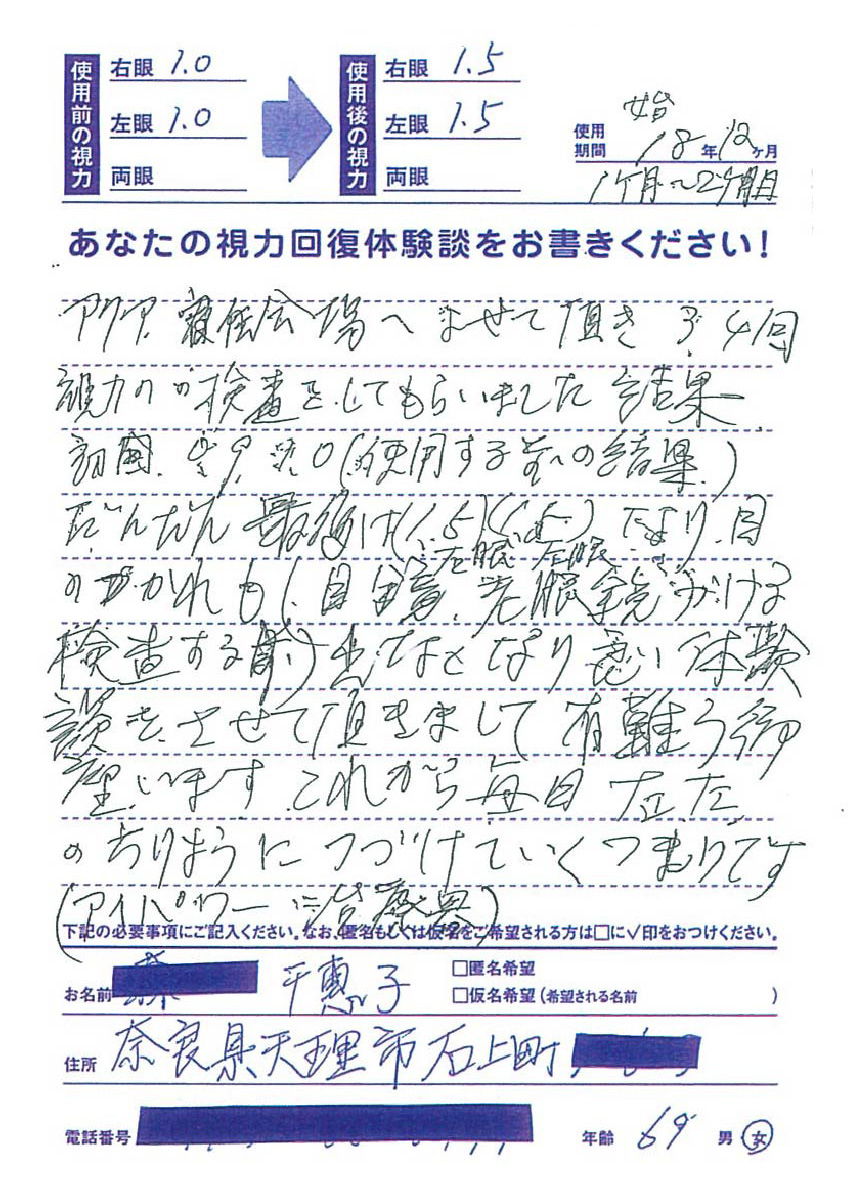 使用前の視力
右眼 1.0
左眼 1.0
両眼
使用後の視力
右眼 1.5
左眼 1.5
両眼
使用期間 始 18年12ヶ月
1ケ月〜2ケ月
あなたの視力回復体験談をお書きください!
アクア 会場へ ませて頂き 3、4回
視力の 検査をしてもらいました 結果
初回 (使用する前の結果)
だんだん最後は(1.5)(1.5)になり、目
右眼 左眼
のつかれも( 老眼鏡 かける
検査する前) なくなり 体験
談をさせて頂きまして 有難う御
座います これから毎日 左右
の ちりょうに つづけていくつもりです
(アイパワー 治療器)
下記の必要事項にご記入ください。なお、匿名もしくは仮名をご希望される方は□に√印をおつけください。
お名前 千恵子
□匿名希望
□仮名希望(希望される名前 )
住所 奈良県天理市石上町
電話番号
年齢 69 男 女